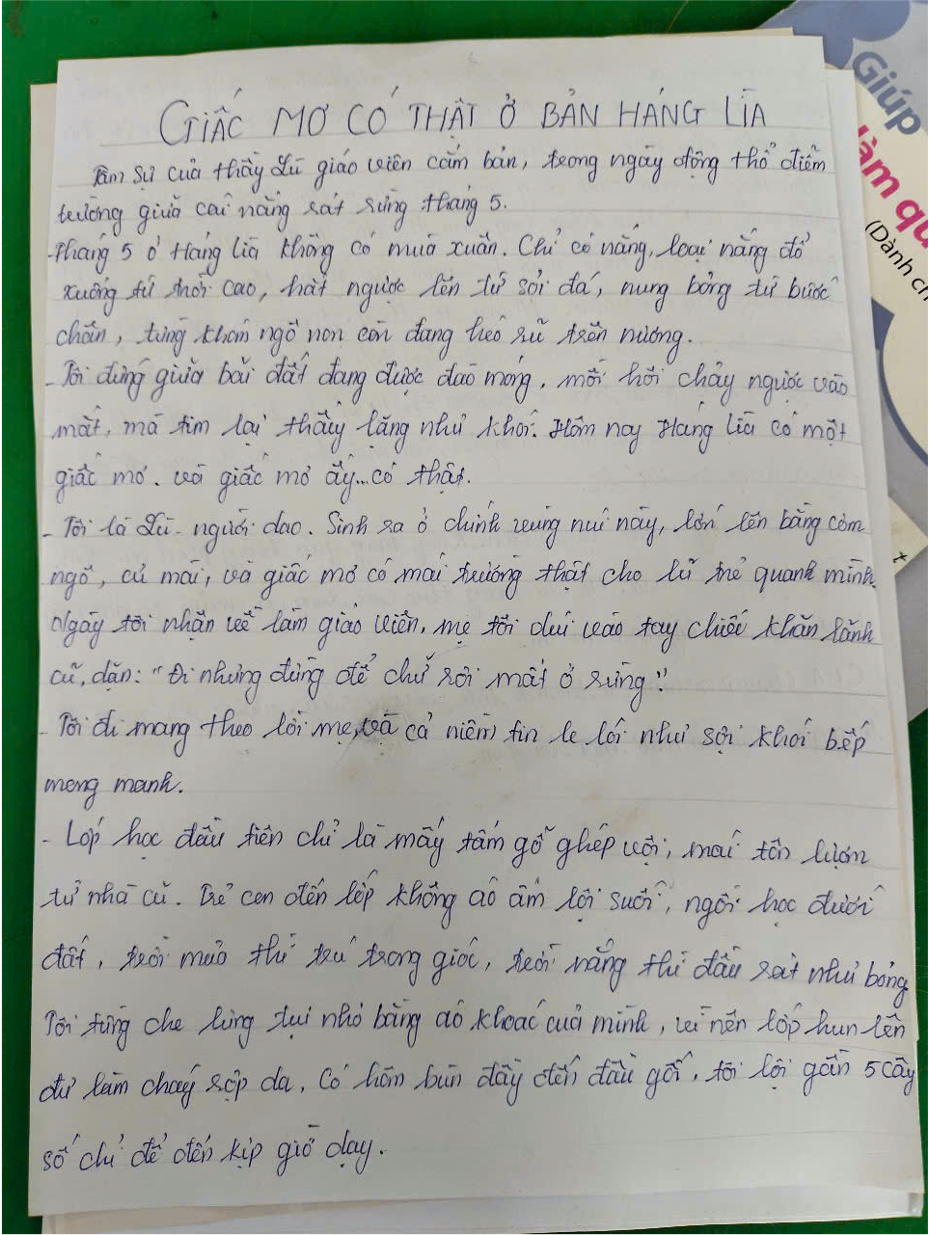 GIẤC MƠ CÓ THẬT Ở BẢN HÁNG LÌA
Tâm sự của thầy Lù giáo viên cắm bản, trong ngày động thổ điểm
trường giữa cái nắng rát rừng tháng 5.
-Tháng 5 ở Háng lìa không có mùa xuân. Chỉ có nắng, loại nắng đổ
xuống từ trời cao, hắt ngược lên từ sỏi đá, nung bỏng từ bước
chân, từng khóm ngô non còn đang héo rũ trên nương.
- Tôi đứng giữa bãi đất đang được đào móng, mồ hôi chảy ngược vào
mắt, mà tim lại thấy lặng như khói. Hôm nay Háng lìa có một
giấc mơ. và giấc mơ ấy...có thật.
- Tôi là Lù- người dao. Sinh ra ở chính vùng núi này, lớn lên bằng cơm
ngô, củ mài, và giấc mơ có mái trường thật cho lũ trẻ quanh mình.
Ngày tôi nhận về làm giáo viên, mẹ tôi dúi vào tay chiếc khăn lành
cũ, dặn: "Đi nhưng đừng để chữ rơi mất ở rừng".
- Tôi đi mang theo lời mẹ, và cả niềm tin le lói như sợi khói bếp
mong manh.
- Lớp học đầu tiên chỉ là mấy tấm gỗ ghép vội, mái tôn lượm
từ nhà cũ. Trẻ con đến lớp không áo ấm lội suối, ngồi học dưới
đất, trời mưa thì trú trong góc, trời nắng thì đầu rát như bỏng.
Tôi từng che lưng tụi nhỏ bằng áo khoác của mình, vì nền lớp hun lên
đủ làm cháy rộp da, Có hôm bùn đầy đến đầu gối, tôi lội gần 5 cây
số chỉ để đến kịp giờ dạy.
Giúp
làm qu
(Dành ch
t